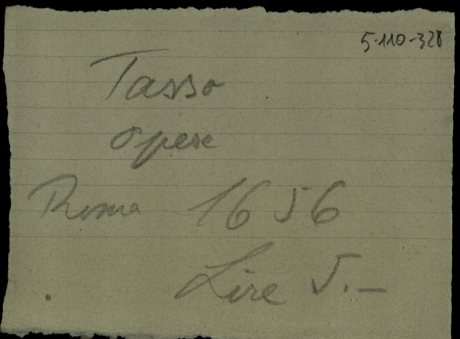 5-110-328
Tasso
opere
Roma 1656
Lire 5.—